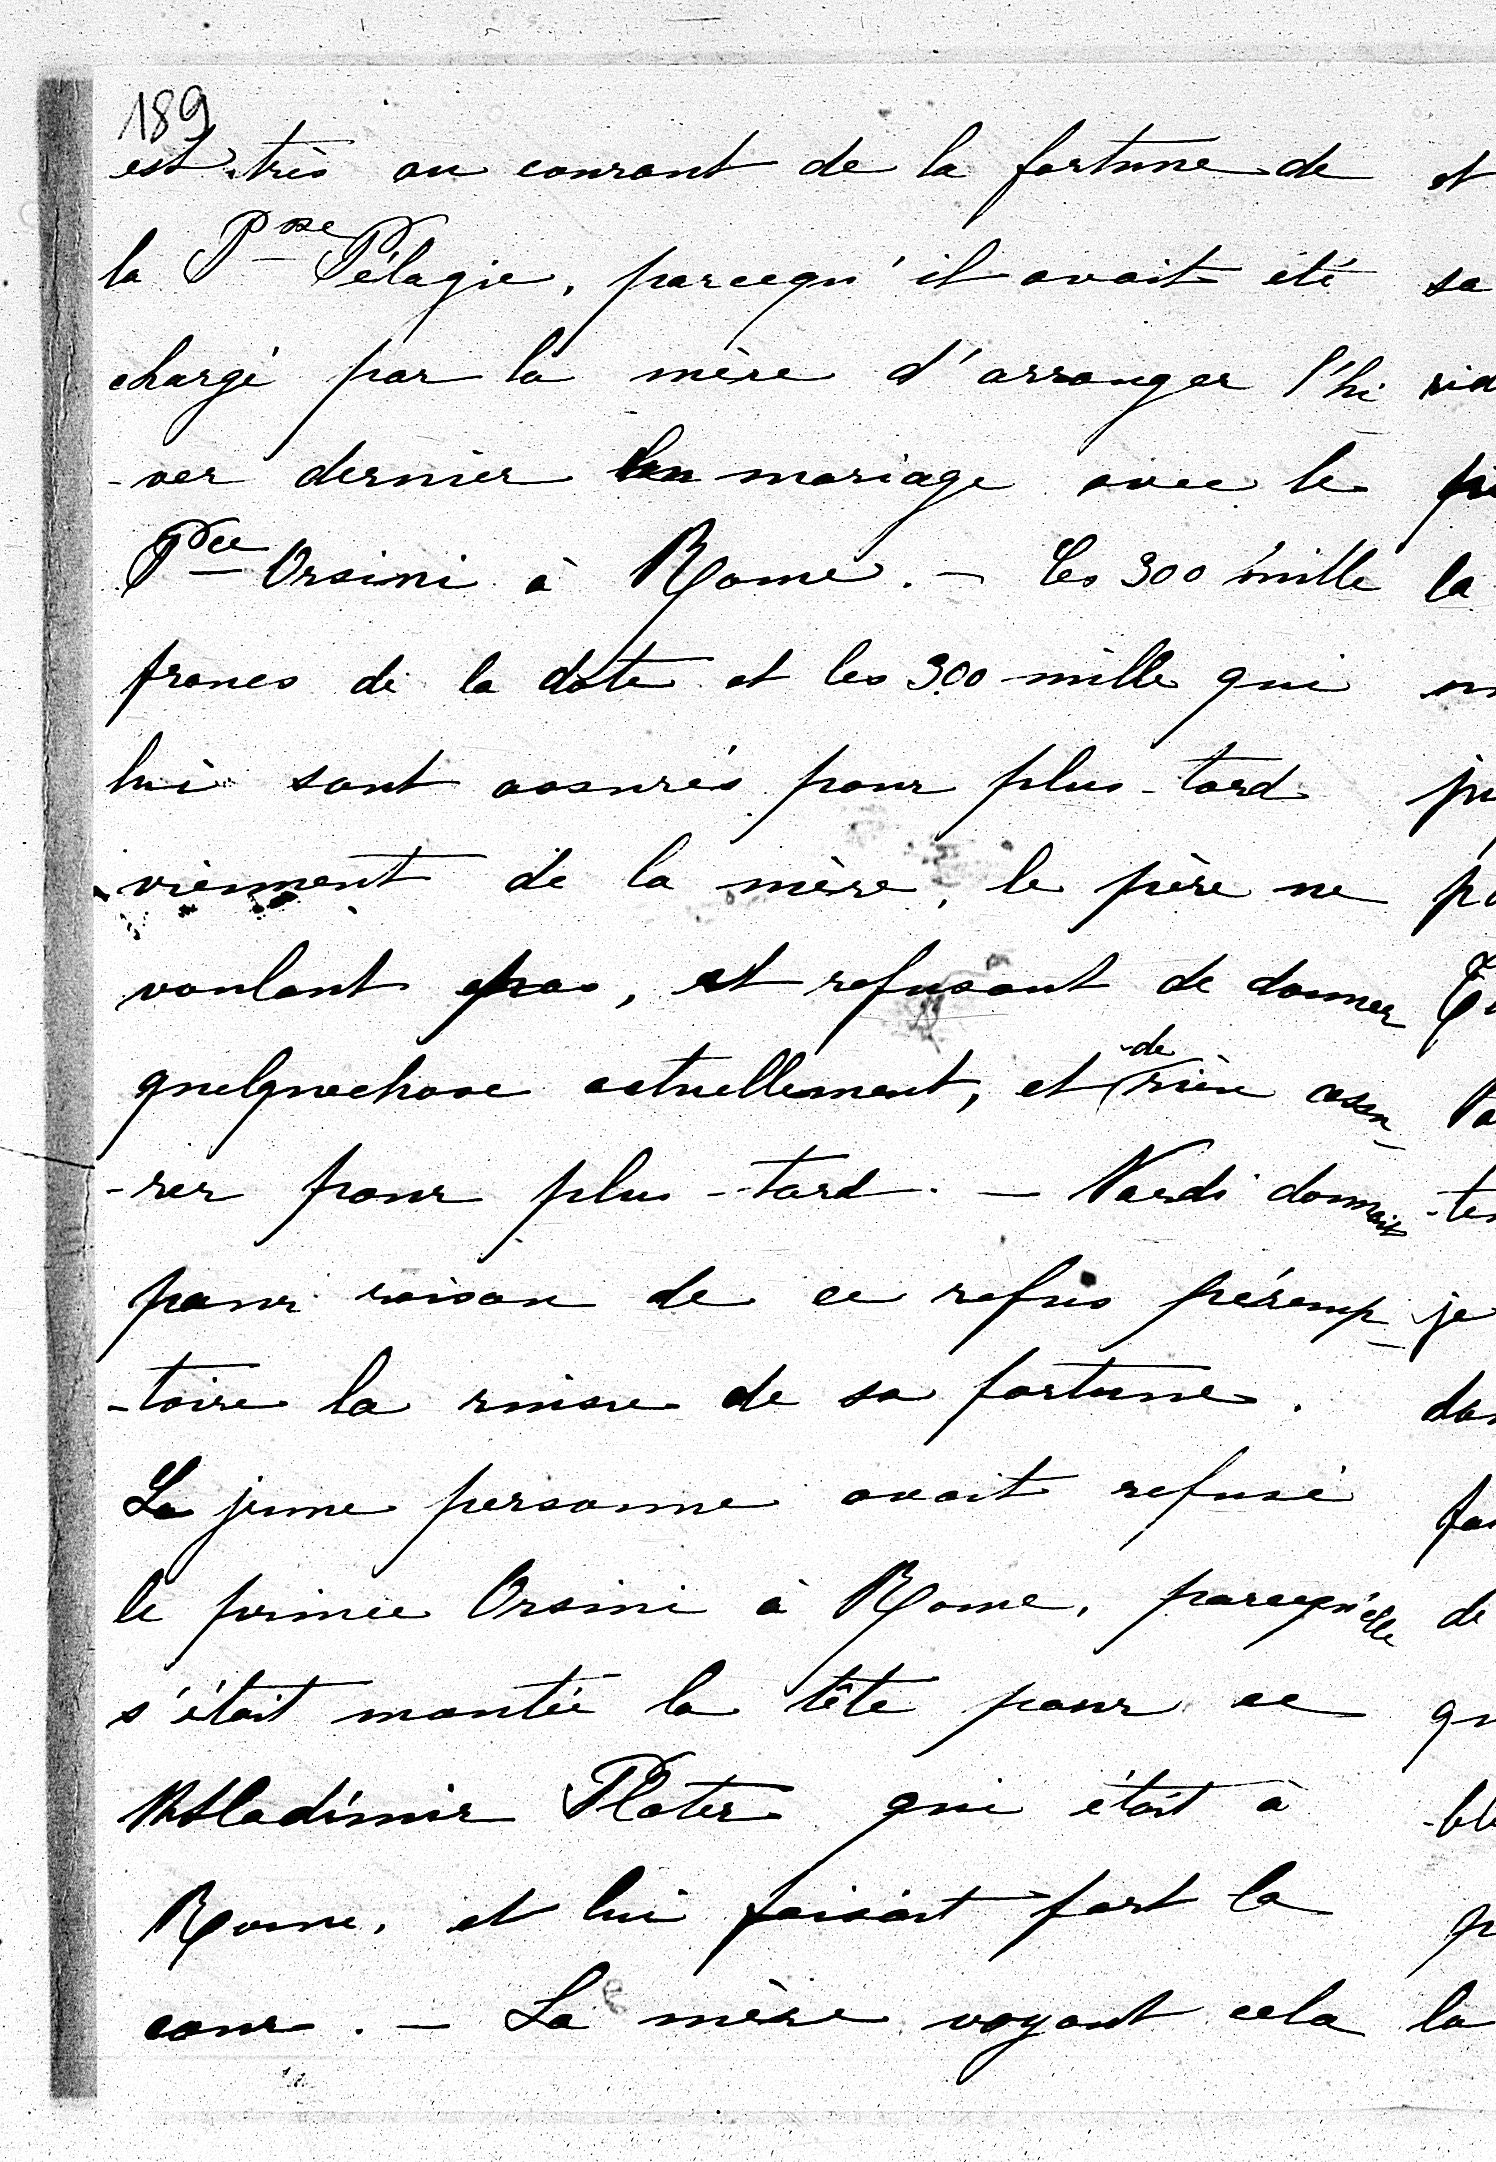 189
est très au courant de la fortune de
la Psse Pélagie, parcequ'il avait été
chargé par la mère d'arranger l'hi
-ver dernier son mariage avec le
Pce Orsini à Rome. – Les 300 mille
francs de la dote et les 300 mille qui
lui sont assurés pour plus-tard
viennent de la mère, le père ne
voulant pas, et refusant de donner
quelquechose actuellement, et de rien assu-
-rer pour plus-tard. – Nardi donnait
pour raison de ce refus péremp-
-toire la ruine de sa fortune.
La jeune personne avait refusé
le prince Orsini à Rome, parcequ'elle
s'était montée la tête pour ce
Wladimir Plater qui était à
Rome, et lui faisait fort la
cour. – La mère voyant cela
et
sa
la
de
je
la